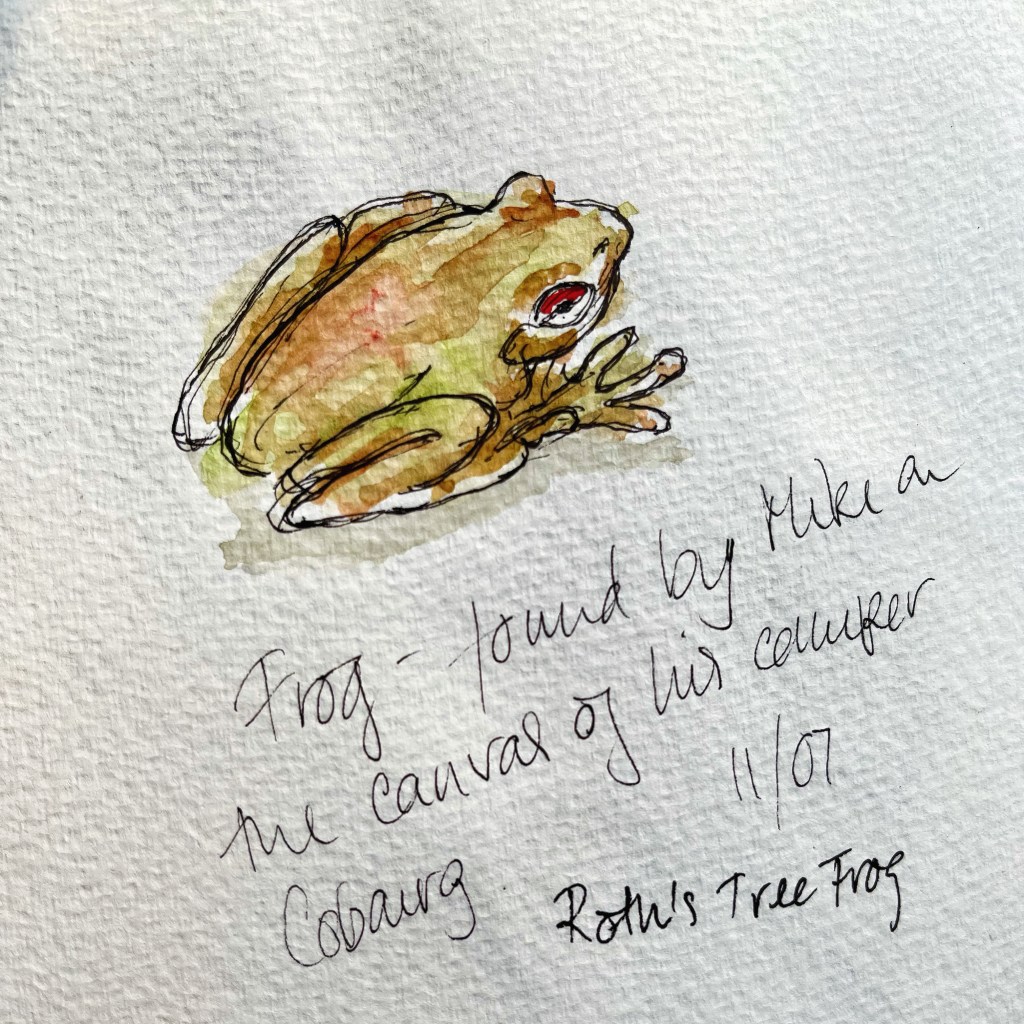 Frog - found by Mike on
the canvas of his camper
11/07
Cobourg
Roth's Tree Frog